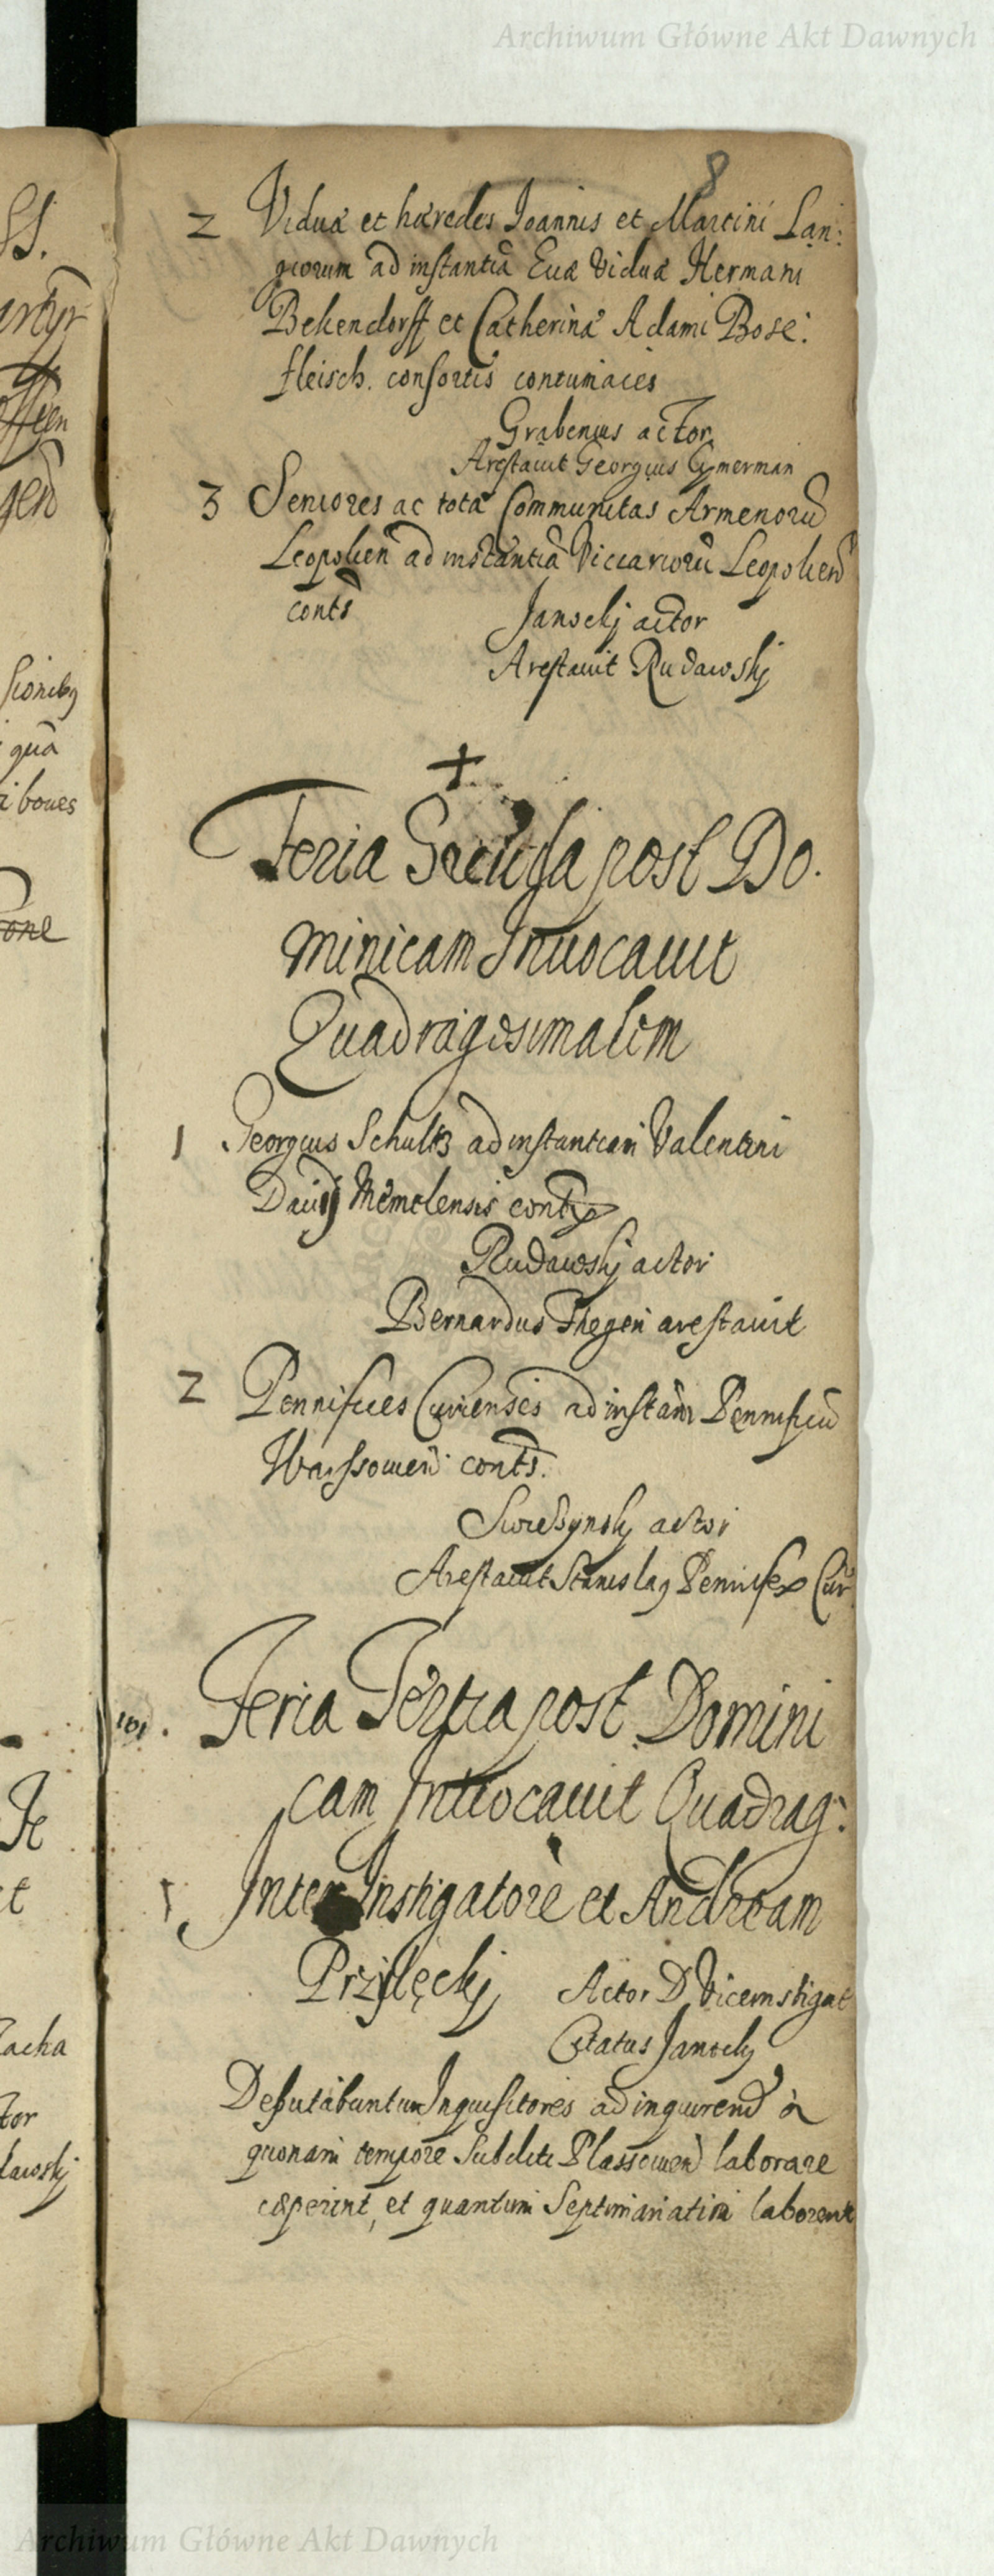 Archiwum Główne Akt Dawnych
8
2 Viduæ et hæredes Joannis et Martini Lan:
giorum ad instantiā Euæ Viduæ Hermani
Bekendorff et Catherinæ Adami Bose:
fleisch. consortis contumaces
Grabenius actor
Arestauit Georgius Cymerman
3 Seniores ac tota Communitas Armenorū
Leopolien ad instantiā Viccariorū Leopolien
conts
Janoclj actor
Arestauit Rudawskj
Feria Secūda post Do.
minicam Inuocauit
Quadragesimalem
1 Georgius Schultz ad instantiam Valentini
Dauid Memelensis cont
Rudawskj actor
Bernardus Thegen arestauit
2 Pennifices Curienses ad instām Pennificū
Warssouien conts.
actor
Arestauit Stanislaq Pennifex Cur
Feria Tertia post Domini
cam Inuocauit Quadrag:
1 Inter Instigatorē et Andream
Przyłęckj Actor D Viceinstigat
Citatus Janoclj
Deputabuntur Inquisitores ad inquirend à
quonam tempore Subditi Plassouien laborare
cæperint, et quantum Septimanatim laborent
SS.
qua
boues
Je
et
acha
tor
dawskj
Archiwum Główne Akt Dawnych